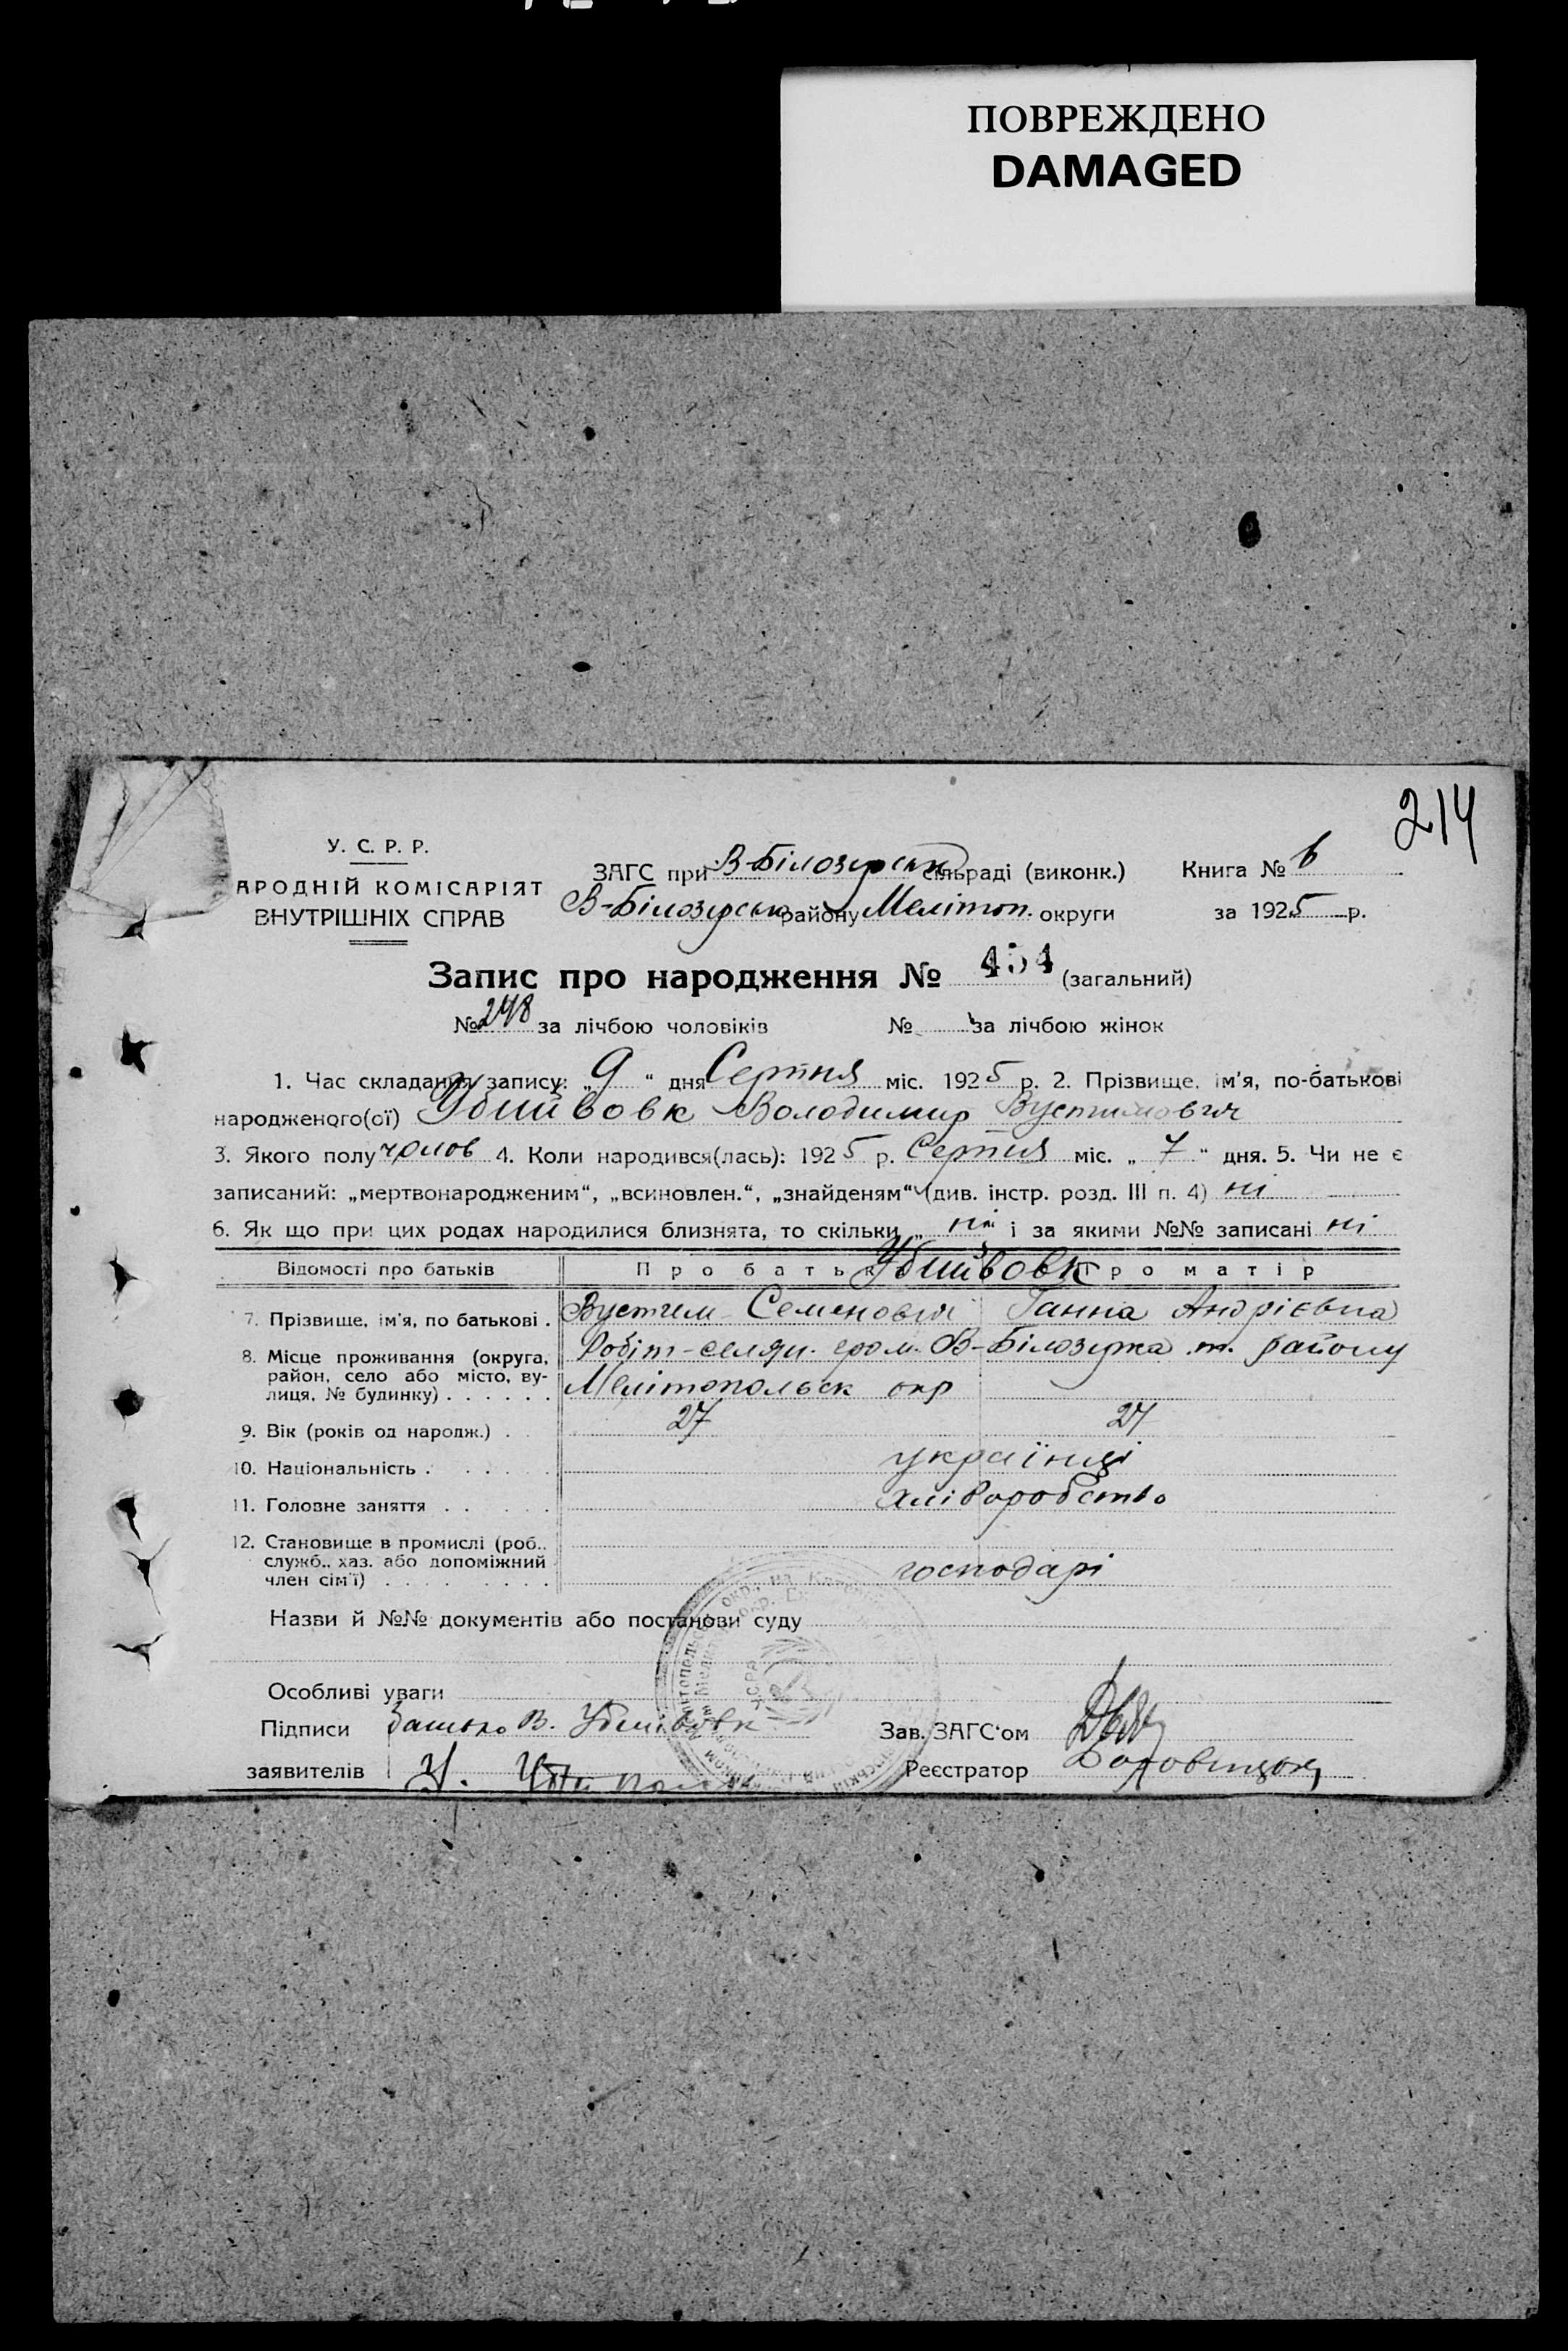 ПОВРЕЖДЕНО
DAMAGED
214
У. С. Р. Р.
АРОДНІЙ КОМІСАРІЯТ
ВНУТРІШНІХ СПРАВ
ЗАГС при В-Білозерськ сільраді (виконк.) Книга № 6
В-Білозерськ району Меліотоп. округи за 1925 р.
Запис про народження № 454 (загальний)
№ 248 за лічбою чоловіків № за лічбою жінок
1. Час складання запису: „ 9 “ дня Серпня міс. 1925 р. 2. Прізвище, ім'я, по-батькові
народженого(ої) Убийвовк Володимир Вустимович
3. Якого полу чолов 4. Коли народився(лась): 1925 р. Серпня міс. „ 7 “ дня. 5. Чи не є
записаний: „мертвонародженим“, „всиновлен.“, „знайденям“ (див. інстр. розд. III п. 4) ні
6. Як що при цих родах народилися близнята, то скільки „ ні “ і за якими №№ записані ні
Відомості про батьків Про батьк Убийвовк Про матір
7. Прізвище, ім'я, по батькові . Вустим Семенович Ганна Андрієвна
8. Місце проживання (округа, район, село або місто, вулиця, № будинку) . . . . . . Робіт-селян. гром. В-Білозерка т. району
Мелітопольск окр
9. Вік (років од народж.) . . 27 27
10. Національність . . . . . . українці
11. Головне заняття . . . . . хліборобство
12. Становище в промислі (роб., служб., хаз. або допоміжний член сім'ї) . . . . . . . . . господарі
Назви й №№ документів або постанови суду
Особливі уваги
Підписи батько В. Убийвовк Зав. ЗАГС'ом
заявителів Реєстратор